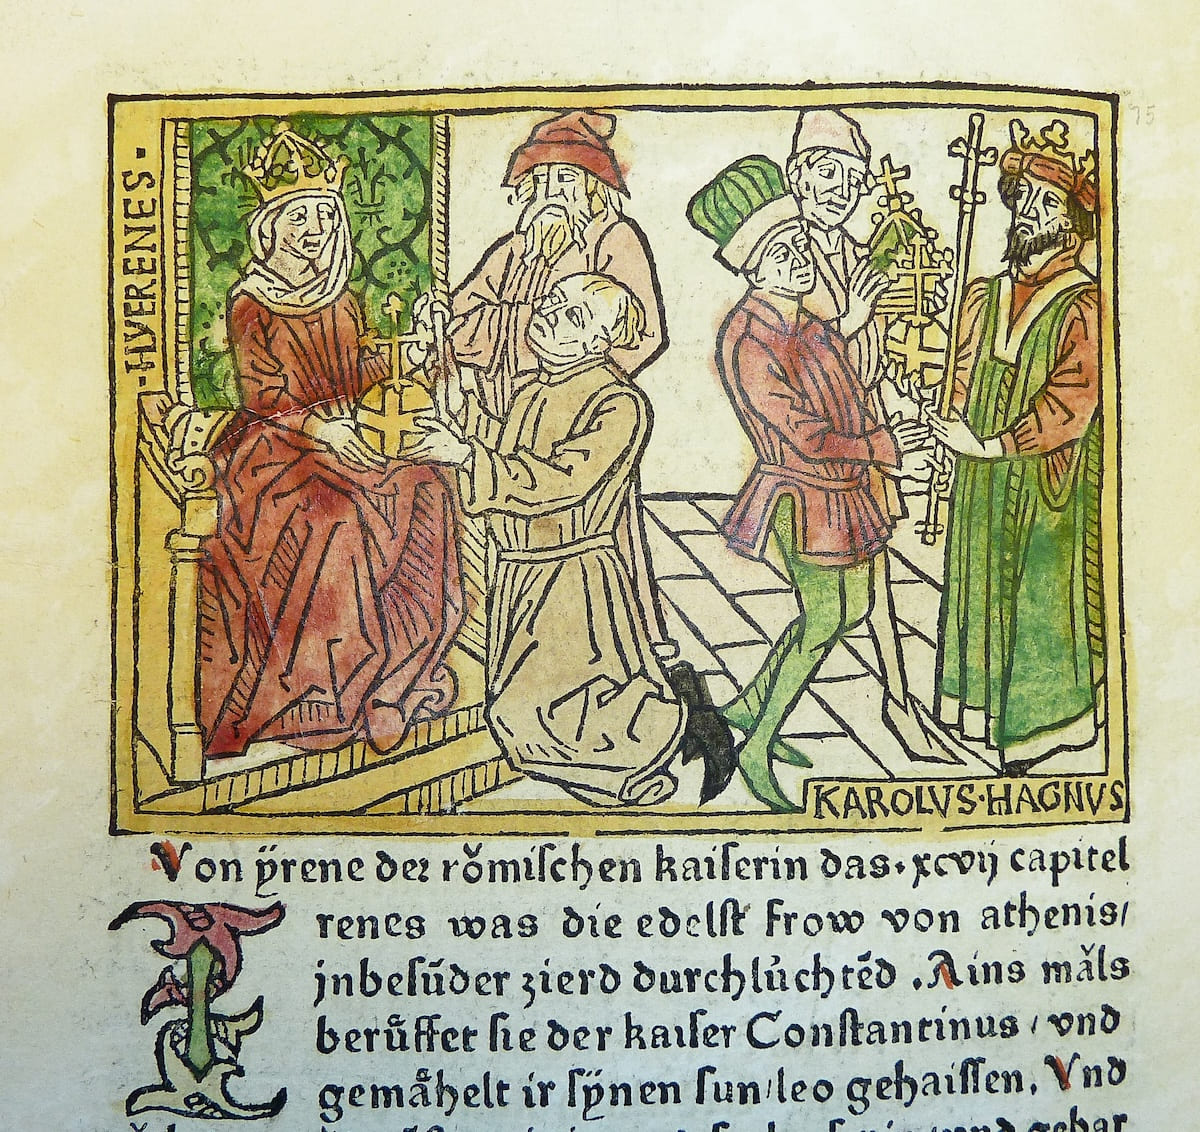 ·HYERENES·
75
KAROLVS·HAGNVS
Von ÿrene der roͤmiſchen kaiſerin das·xcvij capitel
Irenes was die edelſt frow von athenis/
jnbeſūder zierd durchlúchtēd .Ains maͤls
beruͤffet ſie der kaiſer Conſtantinus / vnd
gemaͤhelt ir ſÿnen ſun/leo gehaiſſen. Vnd